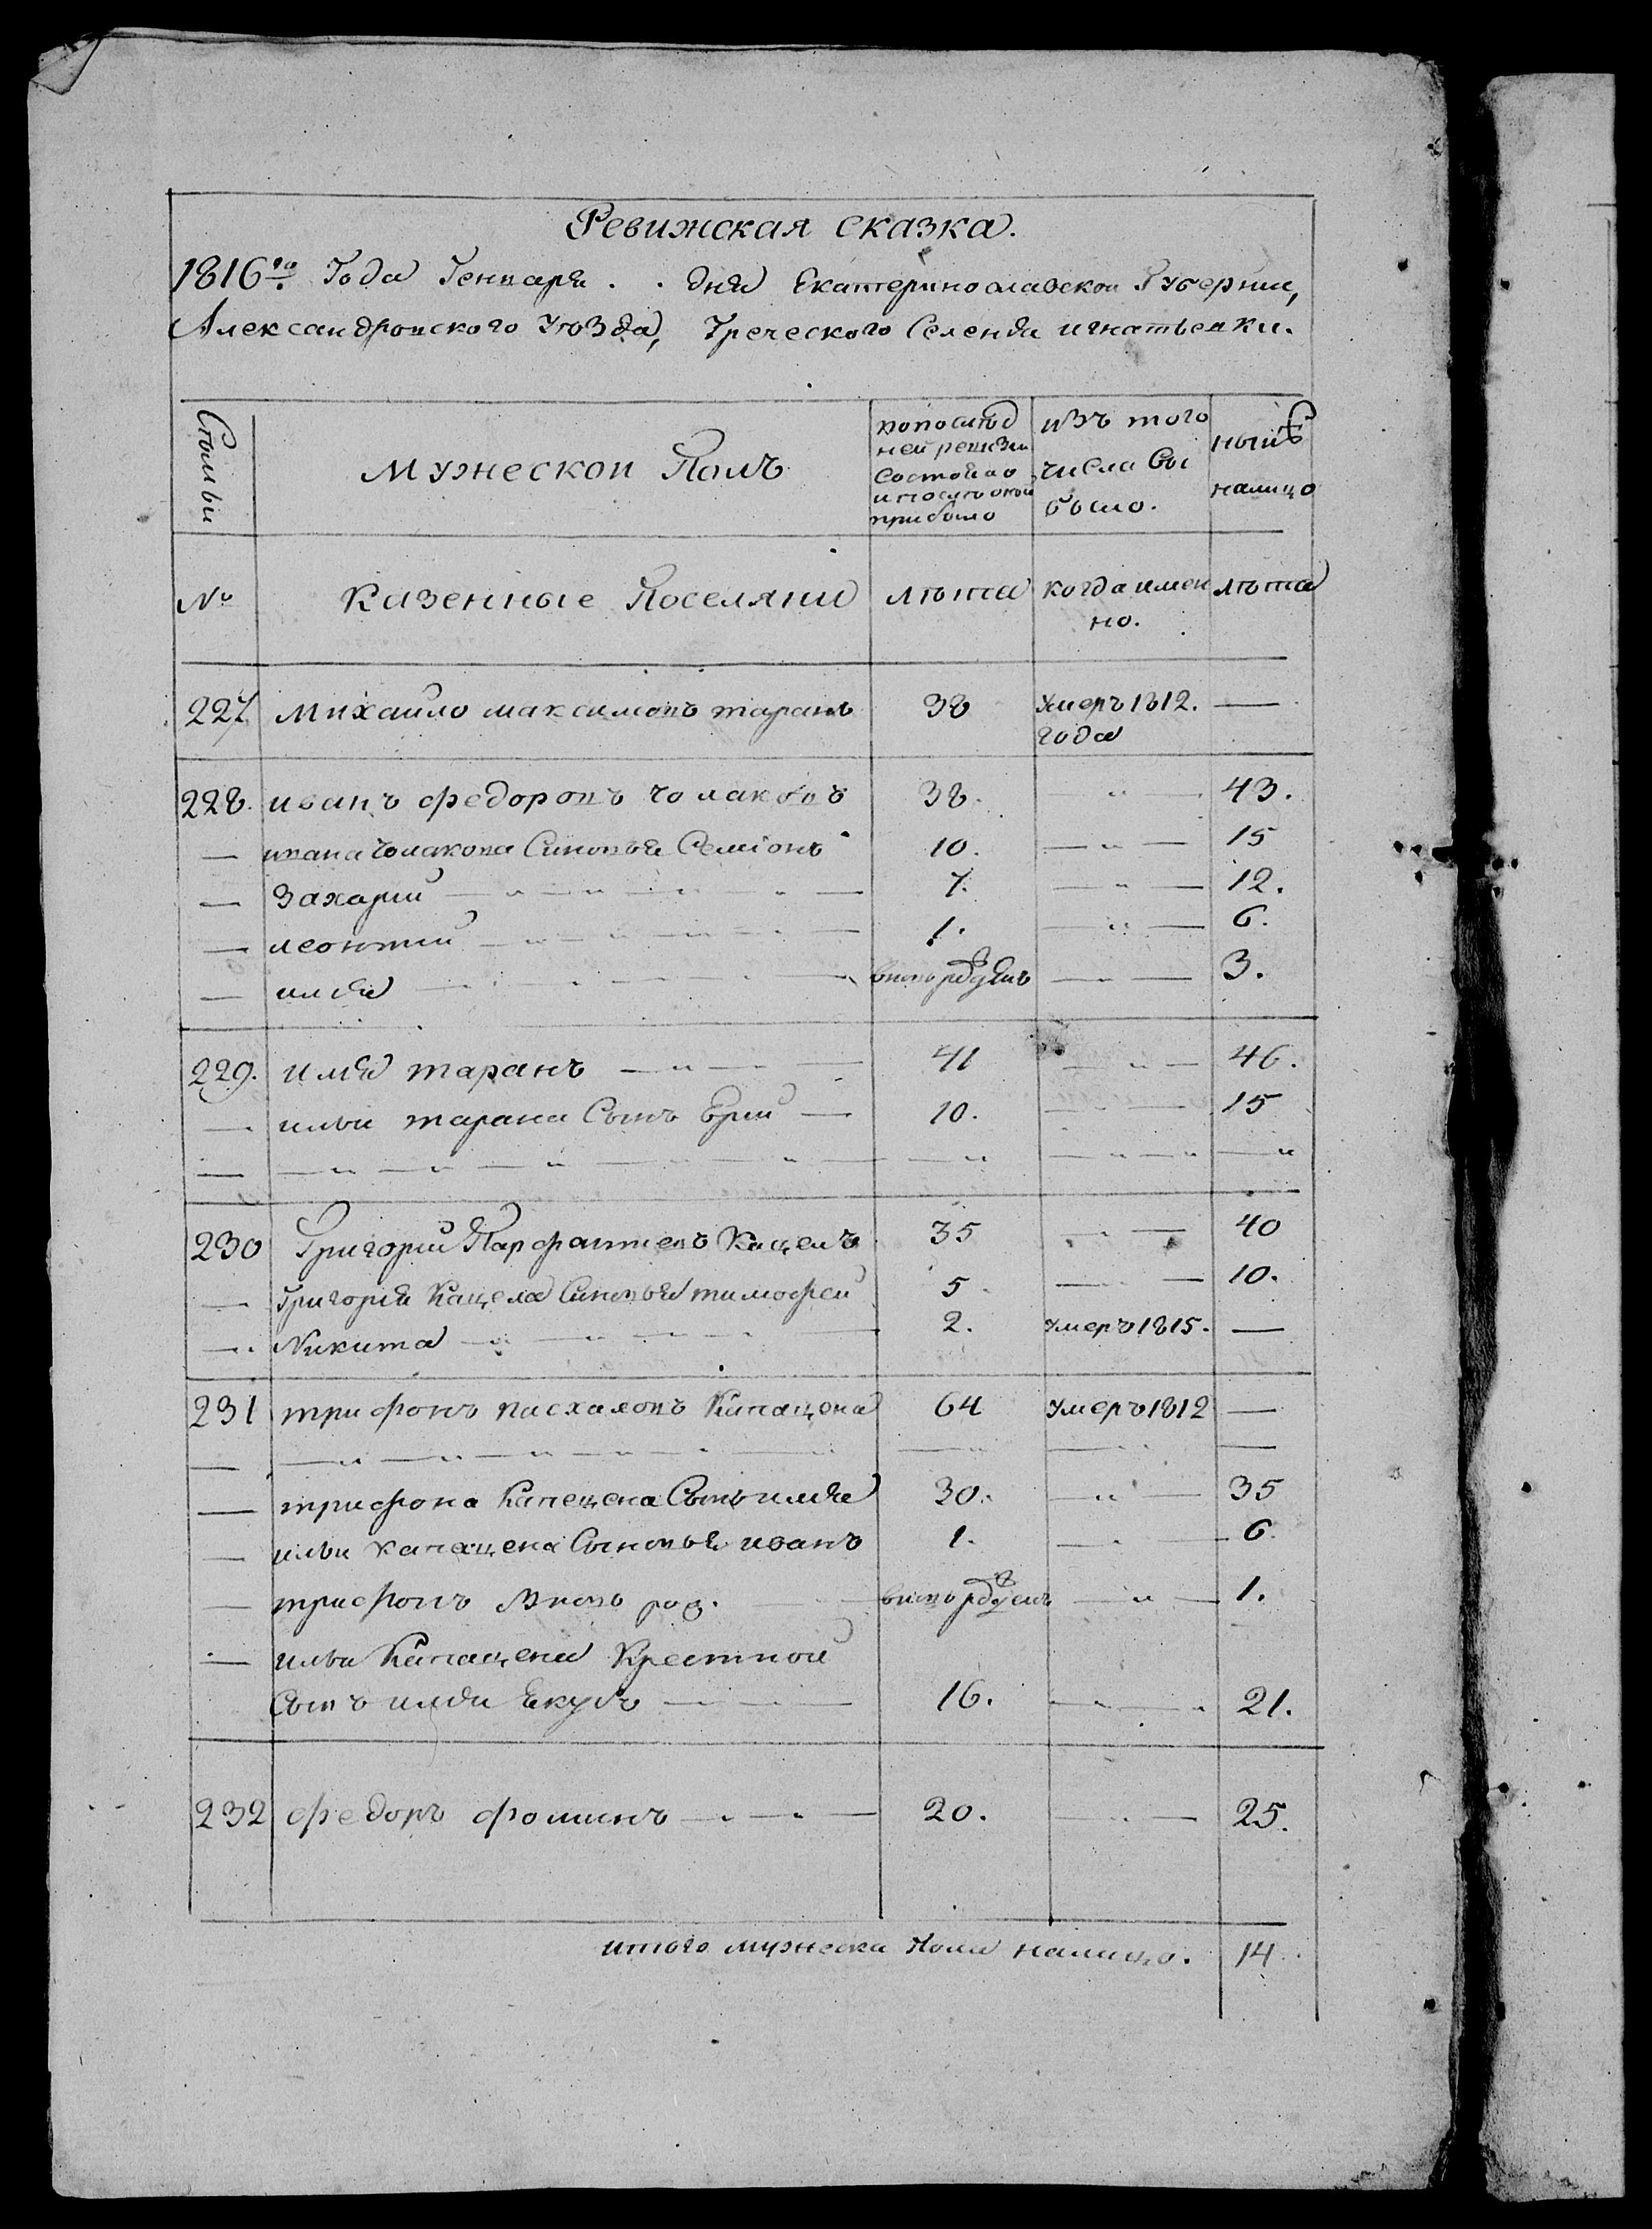 Ревижская сказка.
1816го Года Генваря . . дня Екатеринославской Губернии,
Александровского Уѣзда, Греческого Селенія игнатьевки.
Семьи
Мужескои Полъ
попослѣд
ней ревизіи
состояло
и послѣ оной
прибыло
изъ того
числа вы
было.
нынѣ
налицо
№
Казенные Поселяни
лѣта
когда имен
но.
лѣта
227. михаило максимовъ таранъ 38 Умеръ 1812. —
года
228. иванъ федоровъ чолаковъ 38. — " — 43.
— ивана чолакова Синовья Семіонъ 10. — " — 15
— Захарии — " — " — " — 7. — " — 12.
— леонтии — " — " — " — 1. — " — 6.
— илья — вновь рожденъ — " — 3.
229. илья таранъ — " — 41 — " — 46.
— ильи тарана Сынъ Юрии — 10. — 15
— — " — " — " — " — " — " — " — "
230 Григории Парфантиевъ Кацелъ 35 — " — 40
— Григория Кацела Синовья тимофеи 5. — 10.
— Никита — " — " — 2. умеръ 1815. —
231 трифонъ пасхаловъ Капацена 64 Умеръ 1812 —
— — " — " — " — " — — —
— трифона Капацена Сынъ илья 30. — " — 35
— ильи капацена Сыновья иванъ 1. — " — 6.
— трифонъ вновь рож. — вновь рожденъ — " — 1.
— ильи Капацена Крестнои
Сынъ илья 16. — " — 21.
232 федоръ фоминъ — " — " — 20. — " — 25.
итого мужеска пола налицо. 14